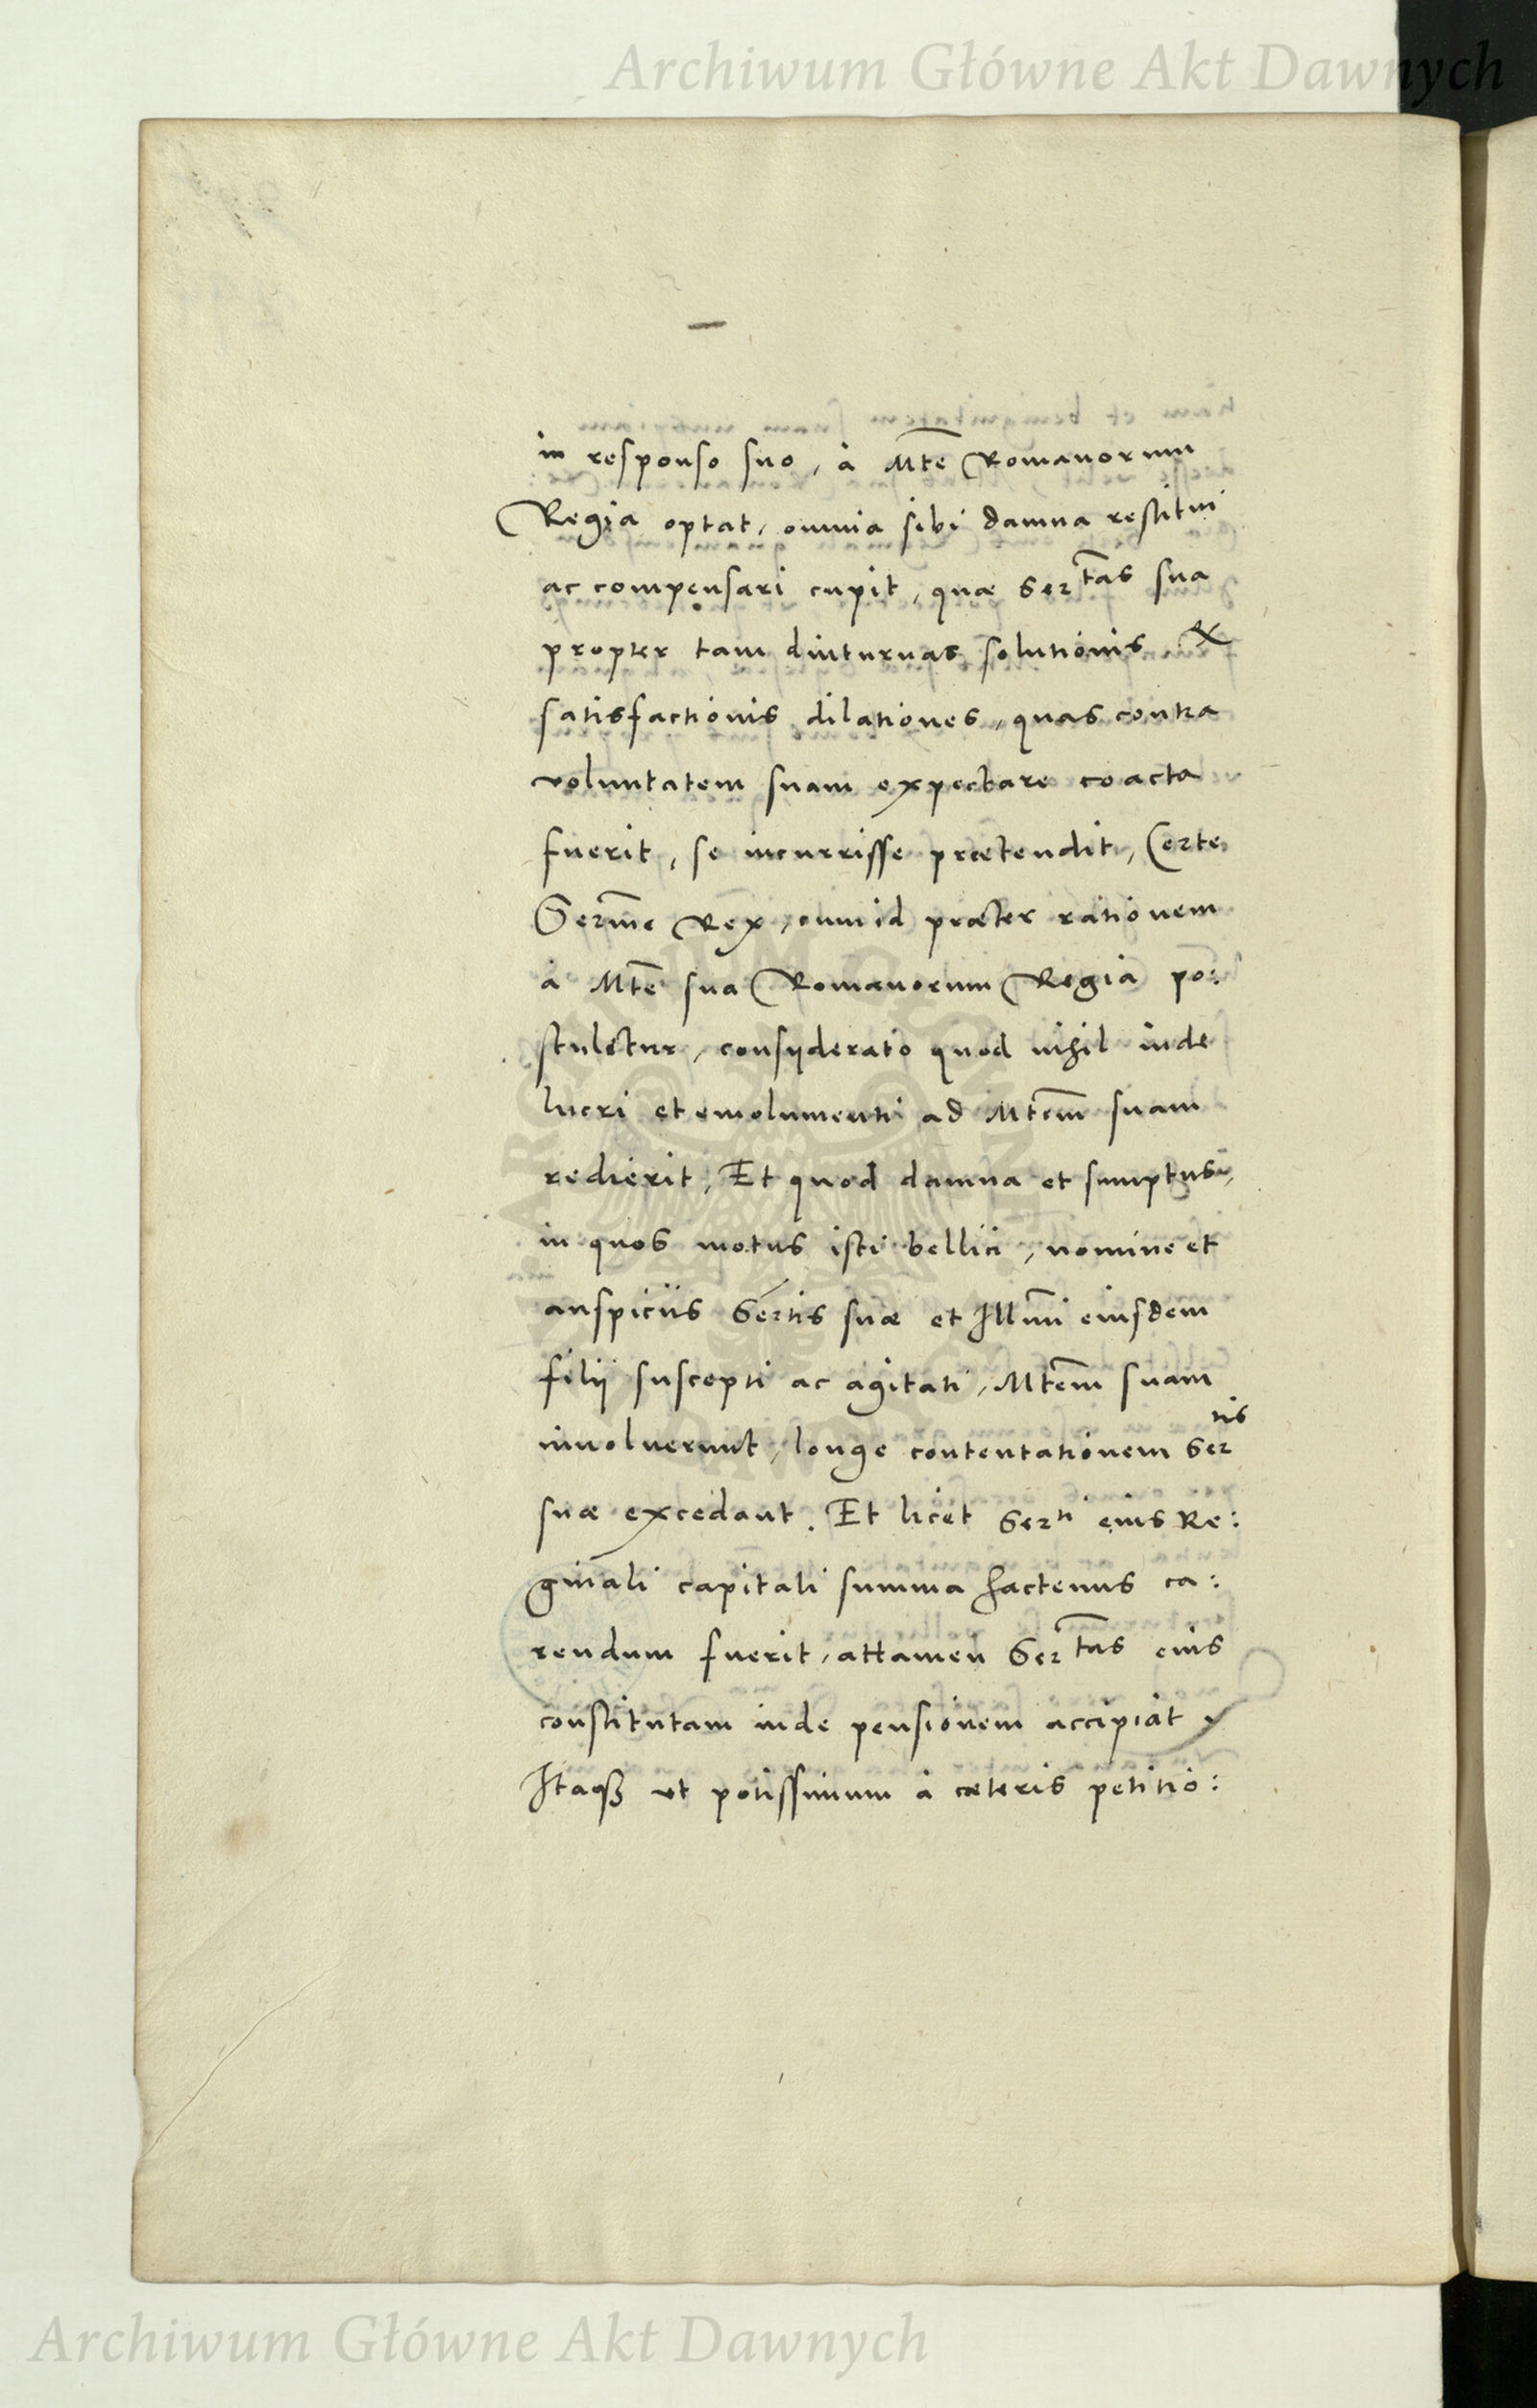 Archiwum Główne Akt Dawnych
in responso suo, à Mte Romanorum
Regia optat, omnia sibi damna restitui
ac compensari cupit, quæ Sertas sua
propter tam diuturnas solutionis &
satisfactionis dilationes, quas contra
voluntatem suam expectare coacta
fuerit, se incurrisse prætendit, Certe
Serme Rex, cum id præter rationem
à Mte sua Romanorum Regia po:
stuletur, consyderato quod nihil inde
lucri et emolumenti ad Mtem suam
redierit, Et quod damna et sumptus,
in quos motus isti bellici, nomine et
auspiciis Sertis suæ et Illmi eiusdem
filij suscepti ac agitati, Mtem suam
inuoluerunt, longe contentationem Sertis
suæ excedant. Et licet Serti eius Re:
ginali capitali summa hactenus ca:
rendum fuerit, attamen Sertas eius
constitutam inde pensionem accipiat
Itaqȝ ut potissimum à cæteris petitio:
Archiwum Główne Akt Dawnych